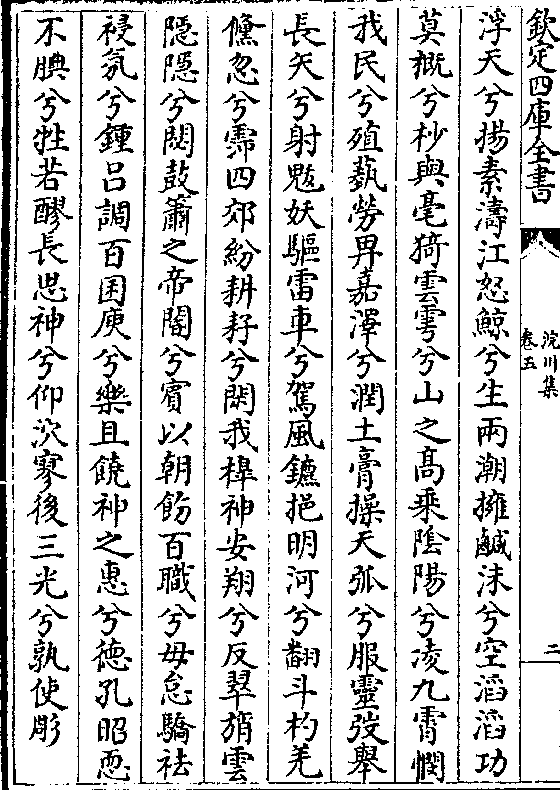 欽定四庫全書
浣川集
卷五
二
浮天兮揚素濤江怒鯨兮生兩潮擁鹹沫兮空滔滔功
莫概兮杪與毫猗雲雩兮山之髙乘陰陽兮凌九霄憫
我民兮殖蓺勞畀嘉澤兮潤土膏操天弧兮服靈弢舉
長矢兮射魃妖驅雷車兮駕風鑣挹明河兮翻斗杓羌
儵忽兮霈四郊紛耕耔兮閟我橰神安翔兮反翠旓雲
隠隠兮閟鼓簫之帝閽兮賓以朝飭百職兮毋怠驕祛
祲氛兮鍾吕調百囷庾兮樂且饒神之惠兮徳孔昭恧
不腆兮牲若醪長思神兮仰泬寥後三光兮孰使彫